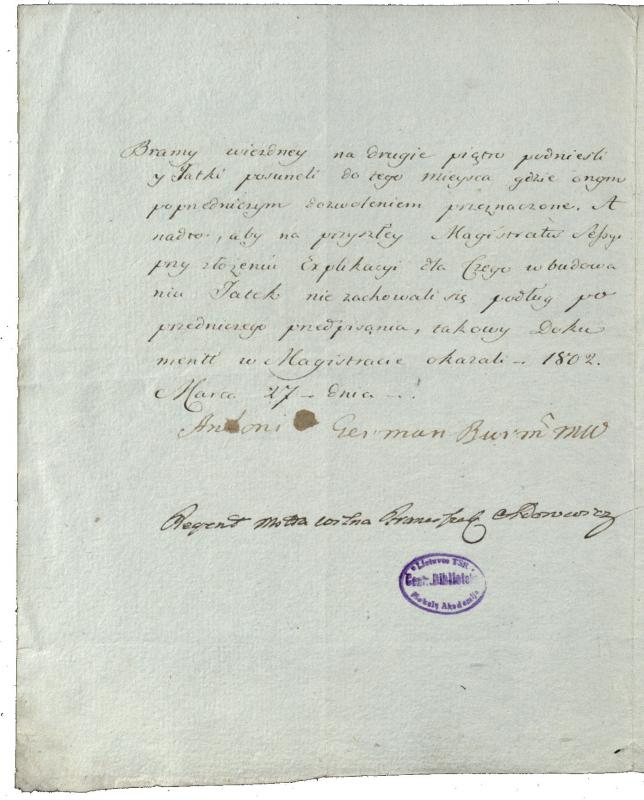 Bramy wiezdney na drugie piątro podnieśli
y Jatki posuneli do tego mieysca gdzie onym
poprzedniczym dozwoleniem przeznaczone. A
nadto, aby na przyszłey Magistratu Sessyi
przy złożeniu Explikacyi dla Czego w budowa
niu Jatek nie zachowali się podług po
przedniczego przedpisania, takowy Doku
mentt w Magistracie okazali – 1802.
Marca 27 – dnia – .
Antoni German Burm MW
Regent Wilna
Lietuvos TSR
Centr. Biblioteka
Mokslų Akademija